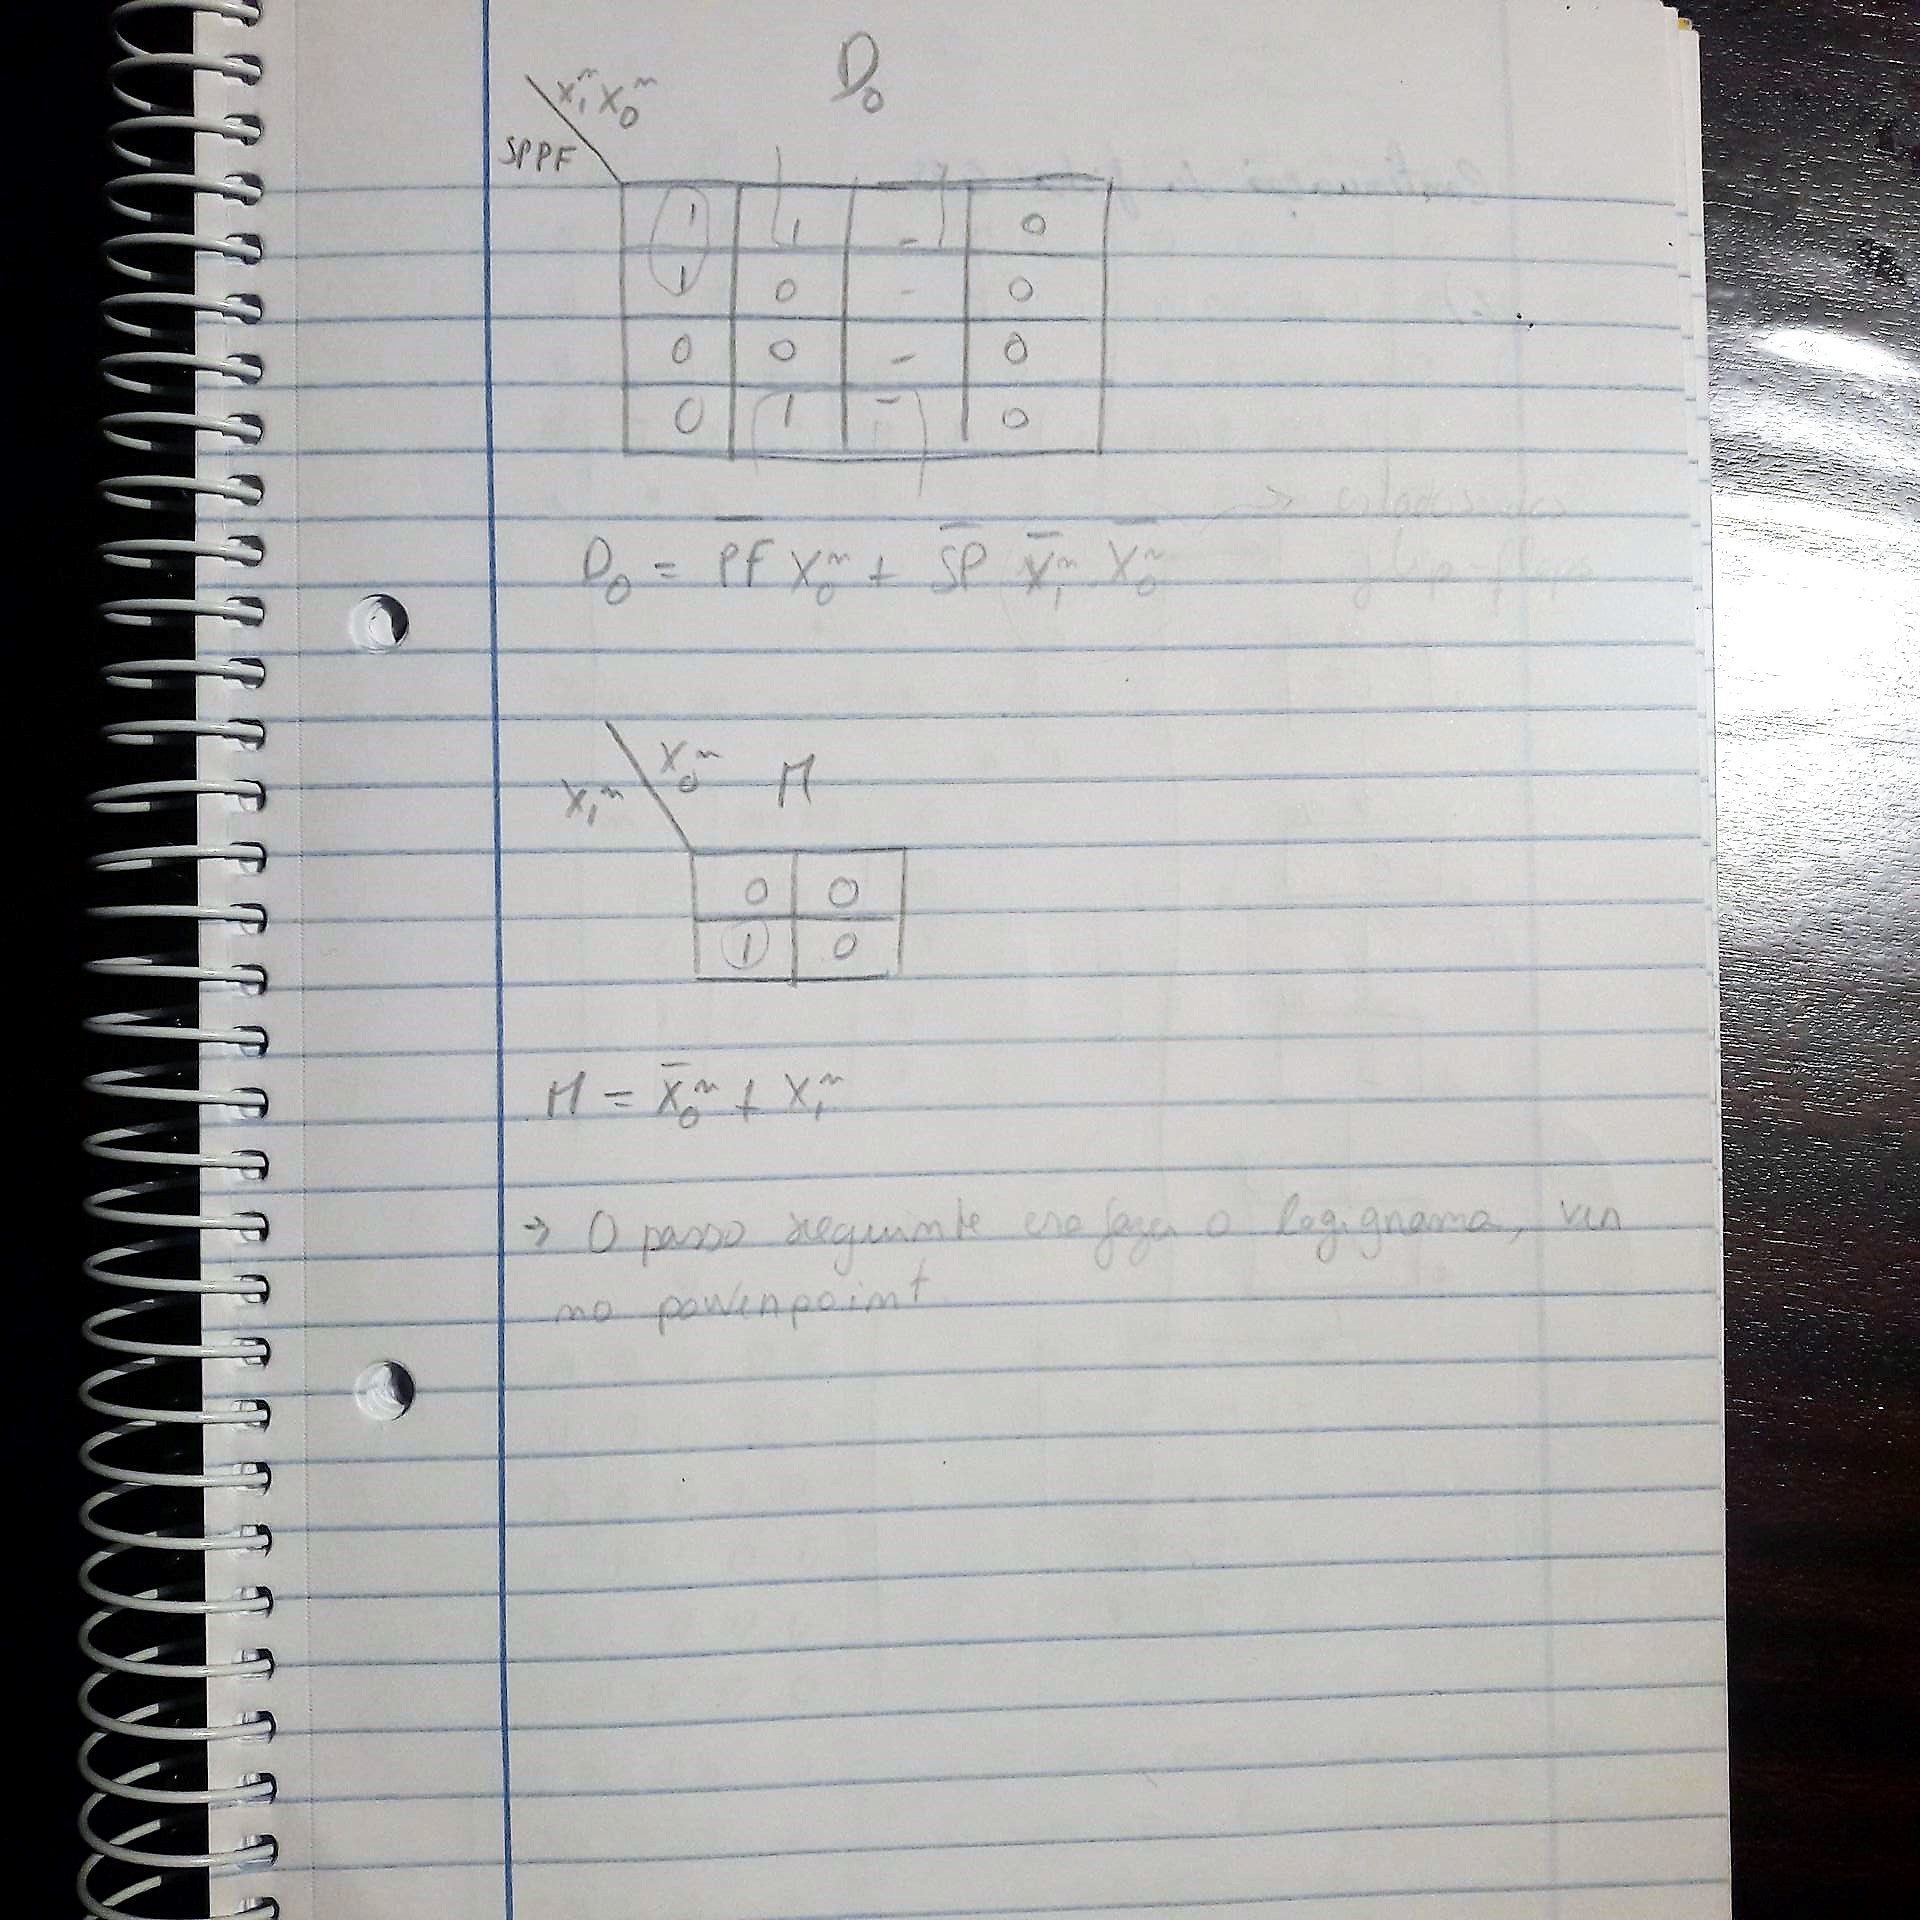 D₀
X₁ⁿ X₀ⁿ
SPPF
1 1 - 0
1 0 - 0
0 0 - 0
0 1 - 0
D₀ = P̅F̅ X₀ⁿ + S̅P̅ X̅₁ⁿ . X̅₀ⁿ
X₀ⁿ M
X₁ⁿ
0 0
1 0
M = X̅₀ⁿ + X₁ⁿ
→ O passo seguinte era fazer o logignama, ver
no powerpoint